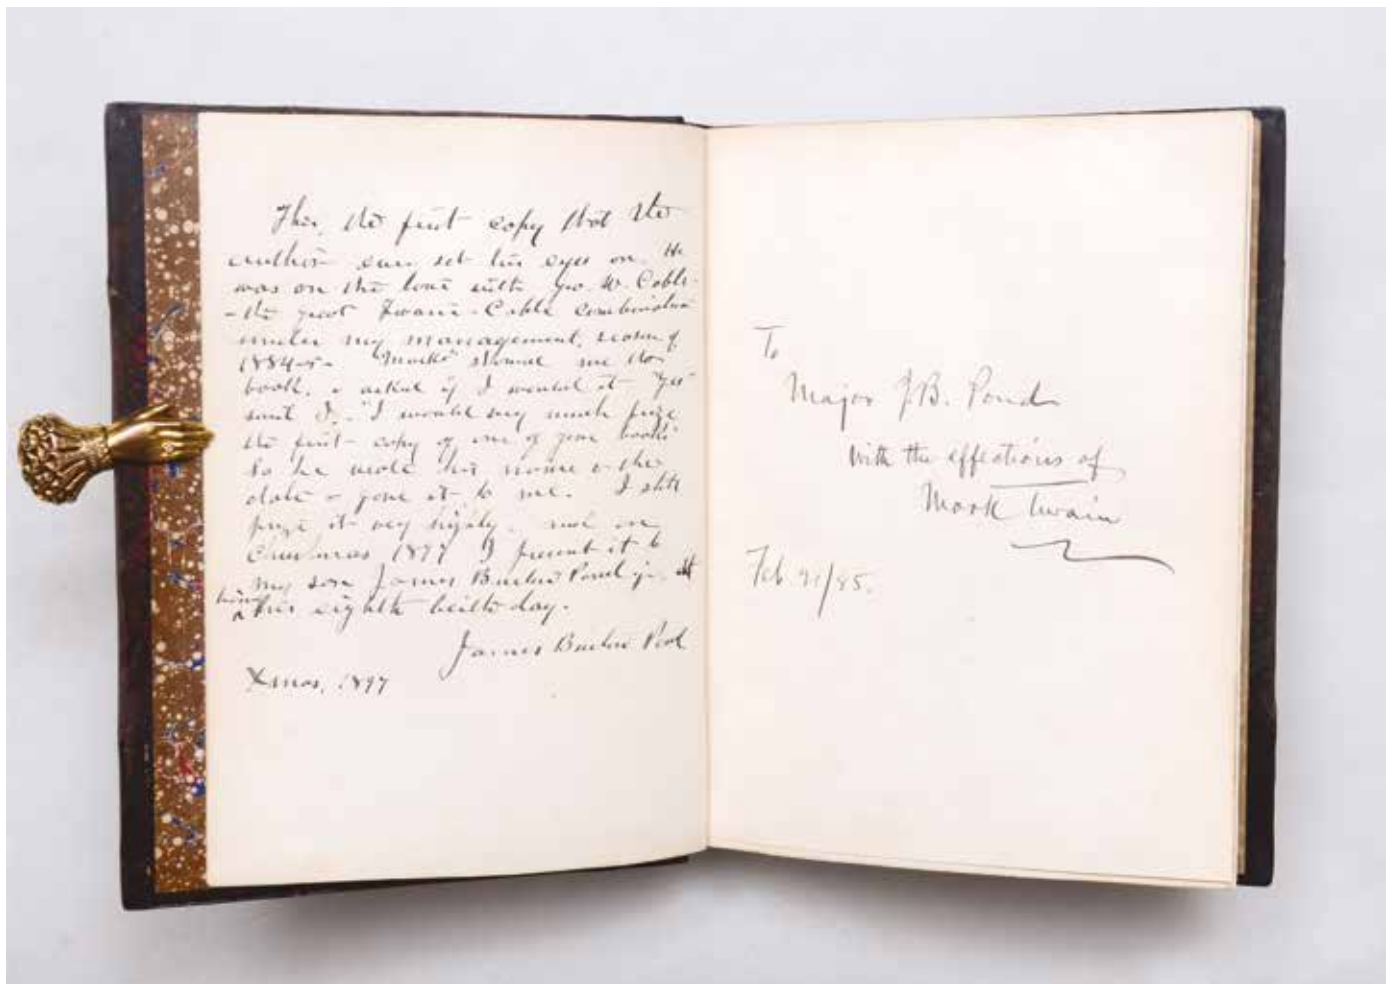 This, the first copy that the
author ever set his eyes on. He
was on the tour with Geo. W. Cable -
- the great Twain - Cable combination
under my management, season of
1884-5 - "Mark" showed me the
book, & asked if I wanted it "Yes"
said I. "I would very much prize
the first copy of one of your books"
So he wrote his name & the
date & gave it to me. I still
prize it very highly, and on
Christmas 1897 I present it to
my son James Burton Pond jr. at
his eighth birth day.
James Burton Pond
Xmas, 1897
To
Major J.B. Pond
with the affections of
Mark Twain
Feb 21/85.